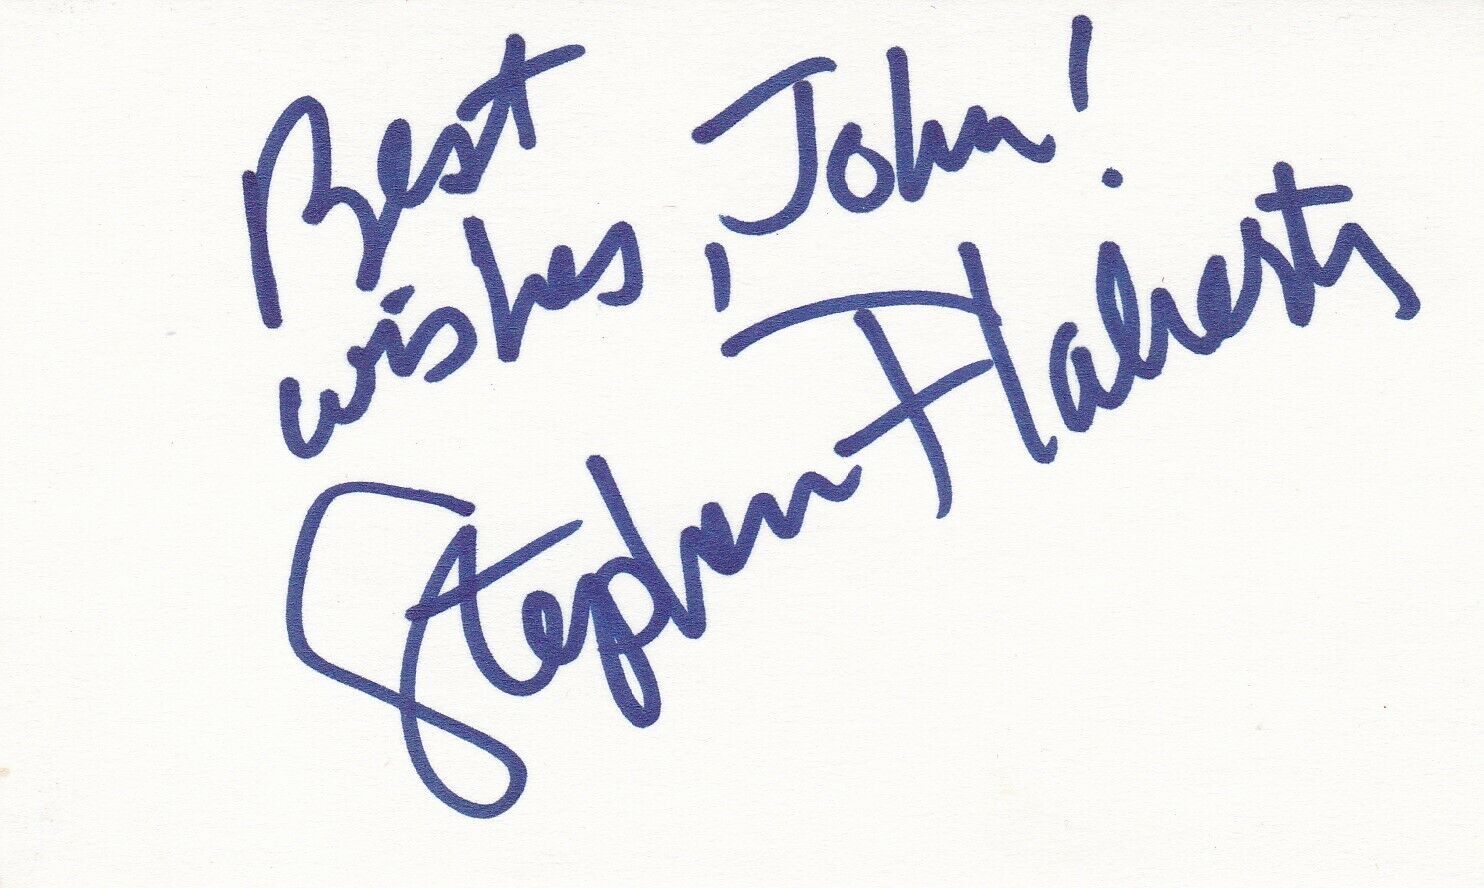 Best
wishes, John!
Stephen Flaherty